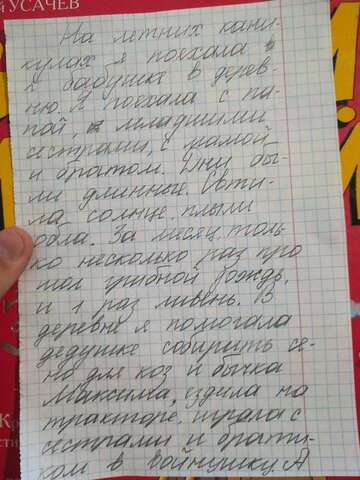 УСАЧЕВ
На летних кани-
кулах я поехала
к бабушке в дерев-
ню. Я поехала с па-
пой, младшими
сестрами, с мамой
и братом. Дни бы-
ли длинные. Свти-
ла солнце, плыли
обла. За месяц толь
ко несколько раз про
шол грибной дождь,
и 1 раз ливень. В
деревне я помогала
дедушке собирить се-
но для коз и бычка
Максима, ездила на
тракторе, играла с
сестрами и брати-
ком в войнушку. А